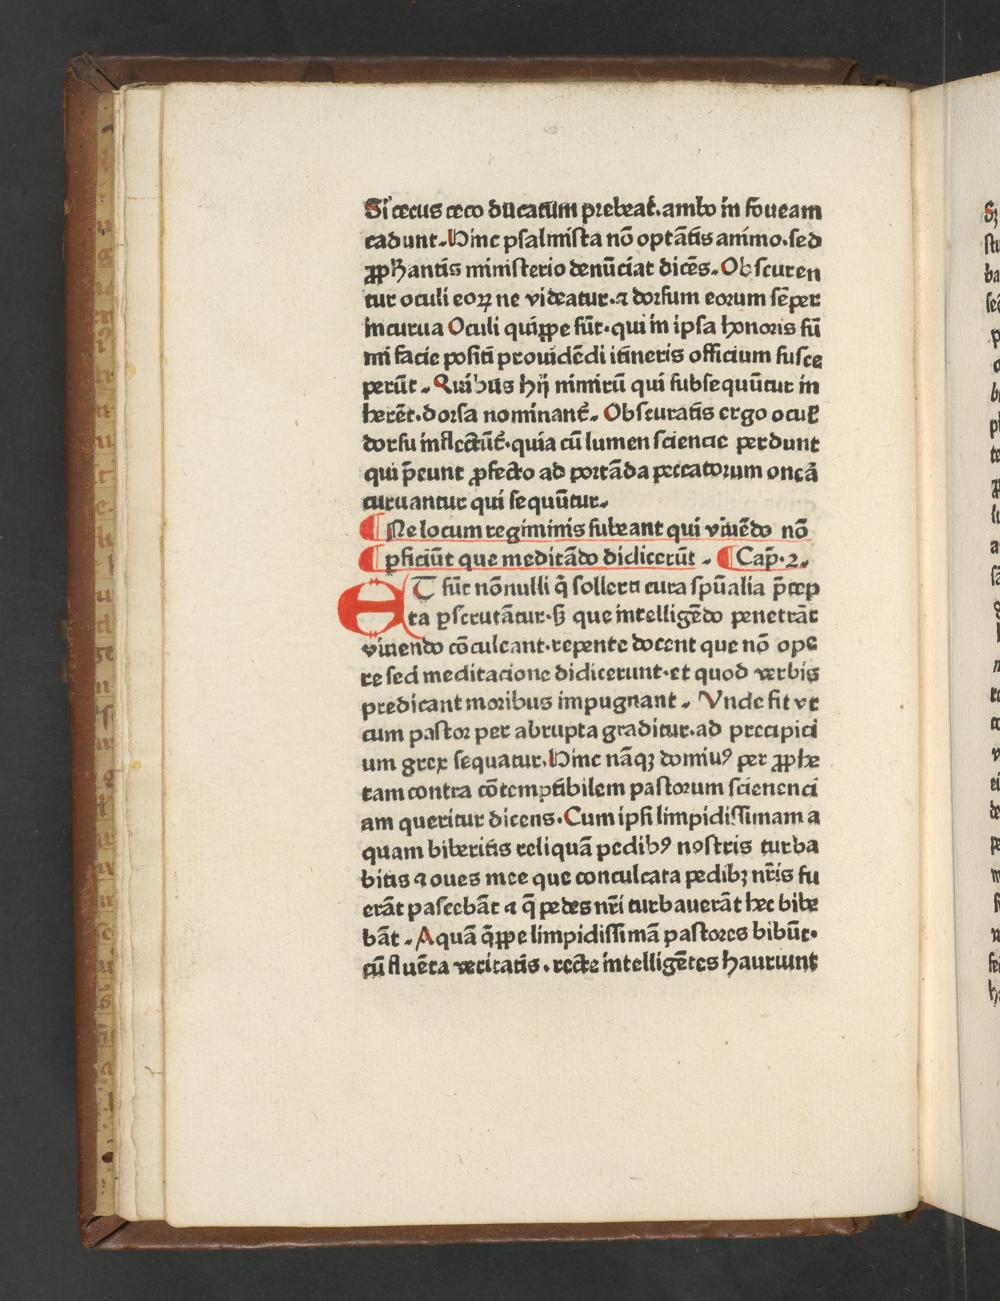 Si cecus ceco ducatum prebeat̃. ambo in foueam
cadunt. Hinc psalmista nõ optãtis animo. sed
ꝓphantis ministerio denũciat dicẽs. Obscuren
tur oculi eoꝝ ne videatur. ⁊ dorsum eorum sẽper
incurua Oculi quiꝑpe sũt. qui in ipsa honoris sũ
mi facie positi prouidẽdi itineris officium susce
perũt. Quibus hij nimirũ qui subsequũtur in
herẽt. dorsa nominanť. Obscuratis ergo oculꝭ
dorsu inflectũť. quia cũ lumen sciencie perdunt
qui p̃eunt ꝓfecto ad portãda peccatorum oncã
curuantur qui sequũtur.
¶ Ne locum regiminis subeant qui viuẽdo nõ
¶ ꝑficiũt que meditãdo didicerũt. ¶ Cap̃. 2.
ET sũt nõnulli q̃ sollerti cura spũalia p̃cep
ta ꝑscrutãtur. sꝫ que intelligẽdo penetrãt
viuendo cõculcant. repente docent que nõ ope
re sed meditacione didicerunt. et quod verbis
predicant moribus impugnant. Vnde fit vt
cum pastor per abrupta graditur. ad precipici
um grex sequatur. Hinc nãqꝫ domiuꝰ per ꝓphe
tam contra cõtemptibilem pastorum scienenci
am queritur dicens. Cum ipsi limpidissimam a
quam biberitis reliquã pedibꝰ nostris turba
bitis ⁊ oues mee que conculcata pedibꝫ nr̃is fu
erãt pascebãt ⁊ q̃ pedes nr̃i turbauerãt hec bibe
bãt. Aquã q̃ꝑpe limpidissimã pastores bibũt.
cũ fluẽta veritatis. recte intelligẽtes hauriunt